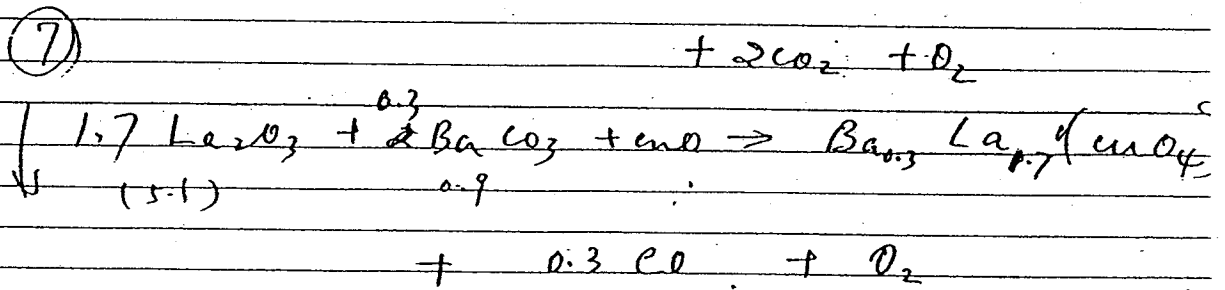 ⑦
+ 2CO₂ + O₂
0.3
1.7 La₂O₃ + 2BaCO₃ + CuO → Ba₀.₃ La₁.₇ CuO₄
(5.1) 0.9
+ 0.3 CO + O₂